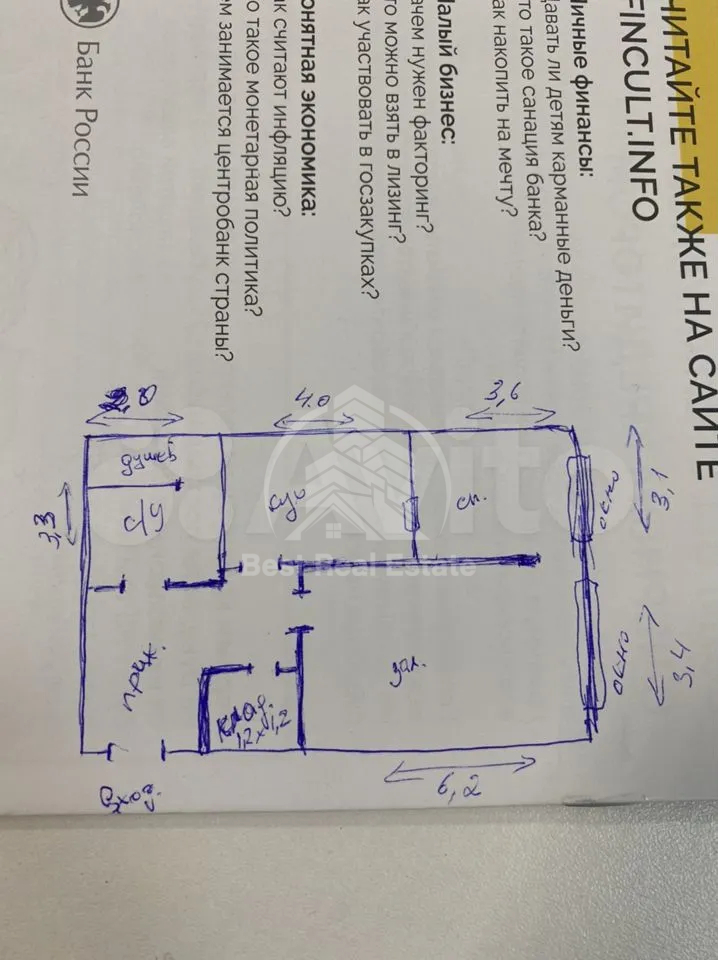 ЧИТАЙТЕ ТАКЖЕ НА САЙТЕ
FINCULT.INFO
Личные финансы:
Давать ли детям карманные деньги?
Что такое санация банка?
Как накопить на мечту?
Малый бизнес:
Зачем нужен факторинг?
Что можно взять в лизинг?
Как участвовать в госзакупках?
онятная экономика:
ак считают инфляцию?
то такое монетарная политика?
ем занимается центробанк страны?
Банк России
4.0
3,6
3,1
окно
душ
с/у
окно
5,4
Avito
Best Real Estate
зал.
клад.
1,2 x 1,2
вход.
6,2